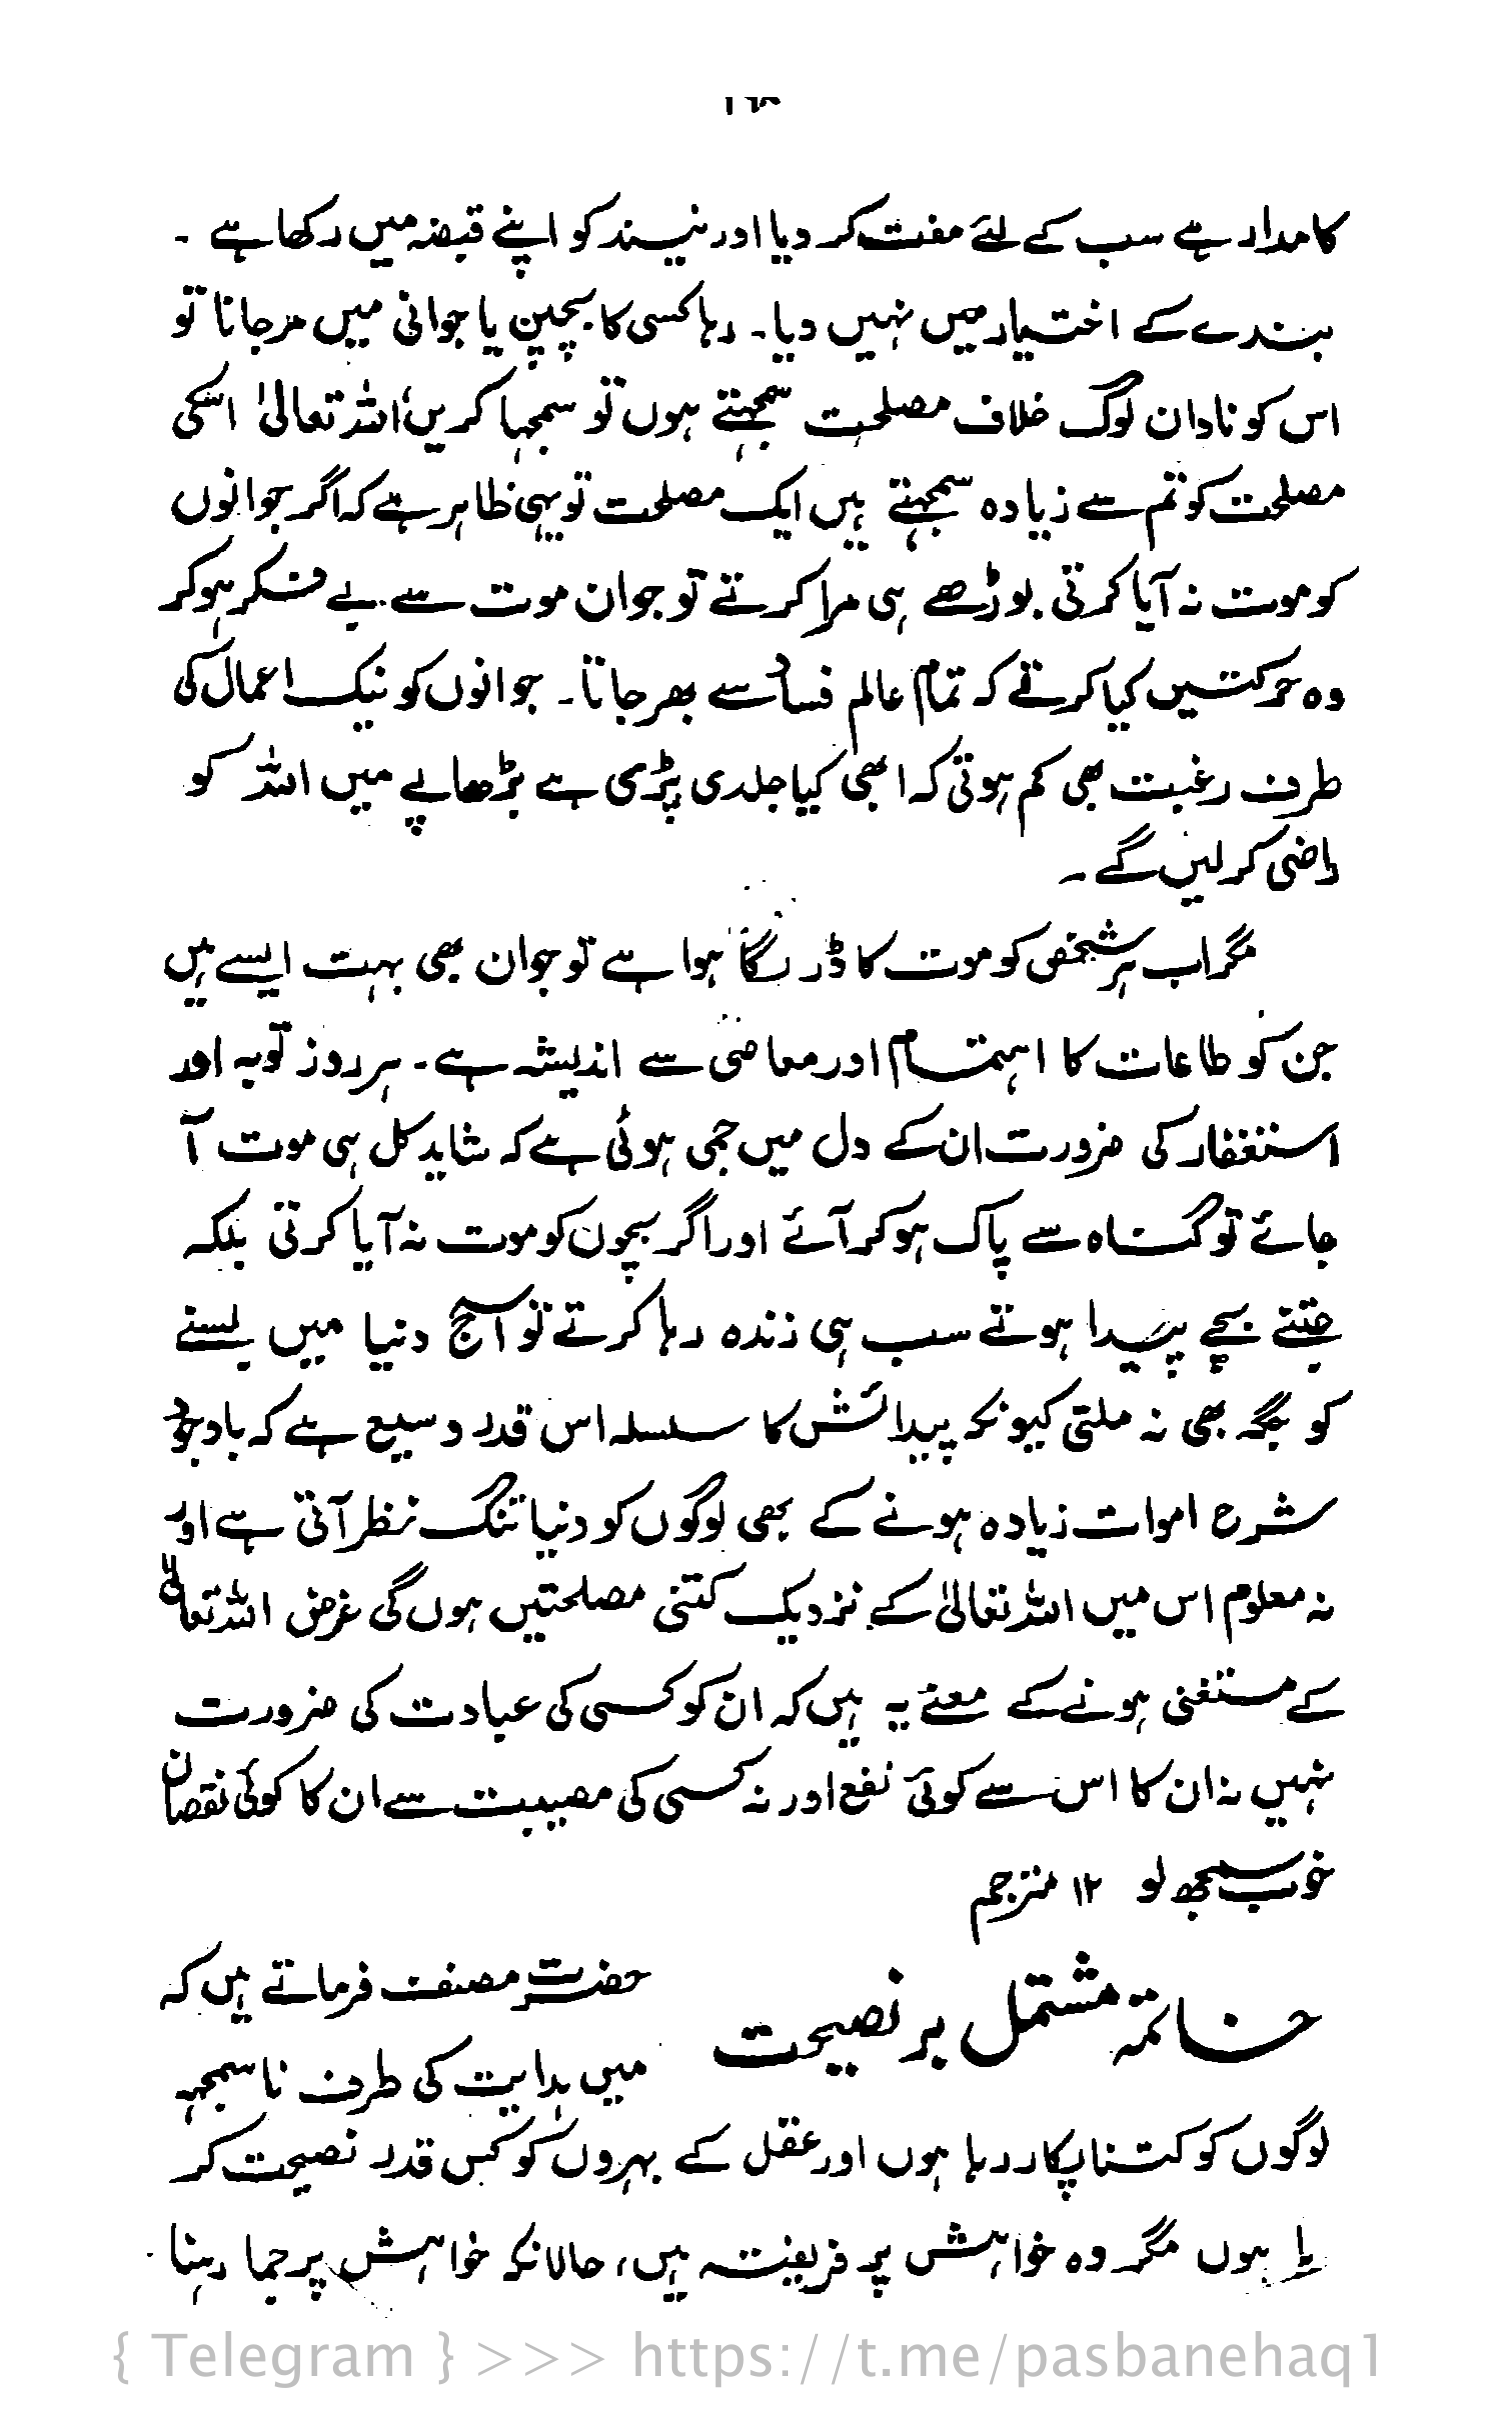 کا مدار ہے سب کے لئے مفت کر دیا اور نیند کو اپنے قبضہ میں رکھا ہے ۔
بندے کے اختیار میں نہیں دیا۔ رہا کسی کا بچپن یا جوانی میں مر جانا تو
اس کو نادان لوگ خلاف مصلحت سمجہتے ہوں تو سمجہا کریں، اللہ تعالیٰ اسکی
مصلحت کو تم سے زیادہ سمجہتے ہیں ایک مصلحت تو یہی ظاہر ہے کہ اگر جوانوں
کو موت نہ آیا کرتی بوڑھے ہی مرا کرتے تو جوان موت سے بے فکر ہو کر
وہ حرکتیں کیا کرتے کہ تمام عالم فساد سے بھر جاتا۔ جوانوں کو نیک اعمال کی
طرف رغبت بھی کم ہوتی کہ ابھی کیا جلدی پڑی ہے بڑھاپے میں اللہ کو
راضی کر لیں گے ۔
مگر اب ہر شخص کو موت کا ڈر لگا ہوا ہے تو جوان بھی بہت ایسے ہیں
جن کو طاعات کا اہتمام اور معاصی سے اندیشہ ہے۔ ہر روز توبہ اور
استغفار کی ضرورت ان کے دل میں جمی ہوئی ہے کہ شاید کل ہی موت آ
جائے تو گناہ سے پاک ہو کر آئے اور اگر بچوں کو موت نہ آیا کرتی بلکہ
جتنے بچے پیدا ہوتے سب ہی زندہ رہا کرتے تو آج دنیا میں بسنے
کو جگہ بھی نہ ملتی کیونکہ پیدائش کا سلسلہ اس قدر وسیع ہے کہ باوجود
شرح اموات زیادہ ہونے کے بھی لوگوں کو دنیا تنگ نظر آتی ہے اور
نہ معلوم اس میں اللہ تعالیٰ کے نزدیک کتنی مصلحتیں ہوں گی غرض اللہ تعالیٰ
کے مستغنی ہونے کے معنے یہ ہیں کہ ان کو کسی کی عبادت کی ضرورت
نہیں نہ ان کا اس سے کوئی نفع اور نہ کسی کی مصیبت سے ان کا کوئی نقصان
خوب سمجھ لو ۱۲ مترجم
خاتمہ مشتمل بر نصیحت
حضرت مصنف فرماتے ہیں کہ
میں ہدایت کی طرف ناسمجہہ
لوگوں کو کتنا پکار رہا ہوں اور عقل کے بہروں کو کس قدر نصیحت کر
رہا ہوں مگر وہ خواہش پر فریفتہ ہیں، حالانکہ خواہش پر جما رہنا
{ Telegram } >>> https://t.me/pasbanehaq1